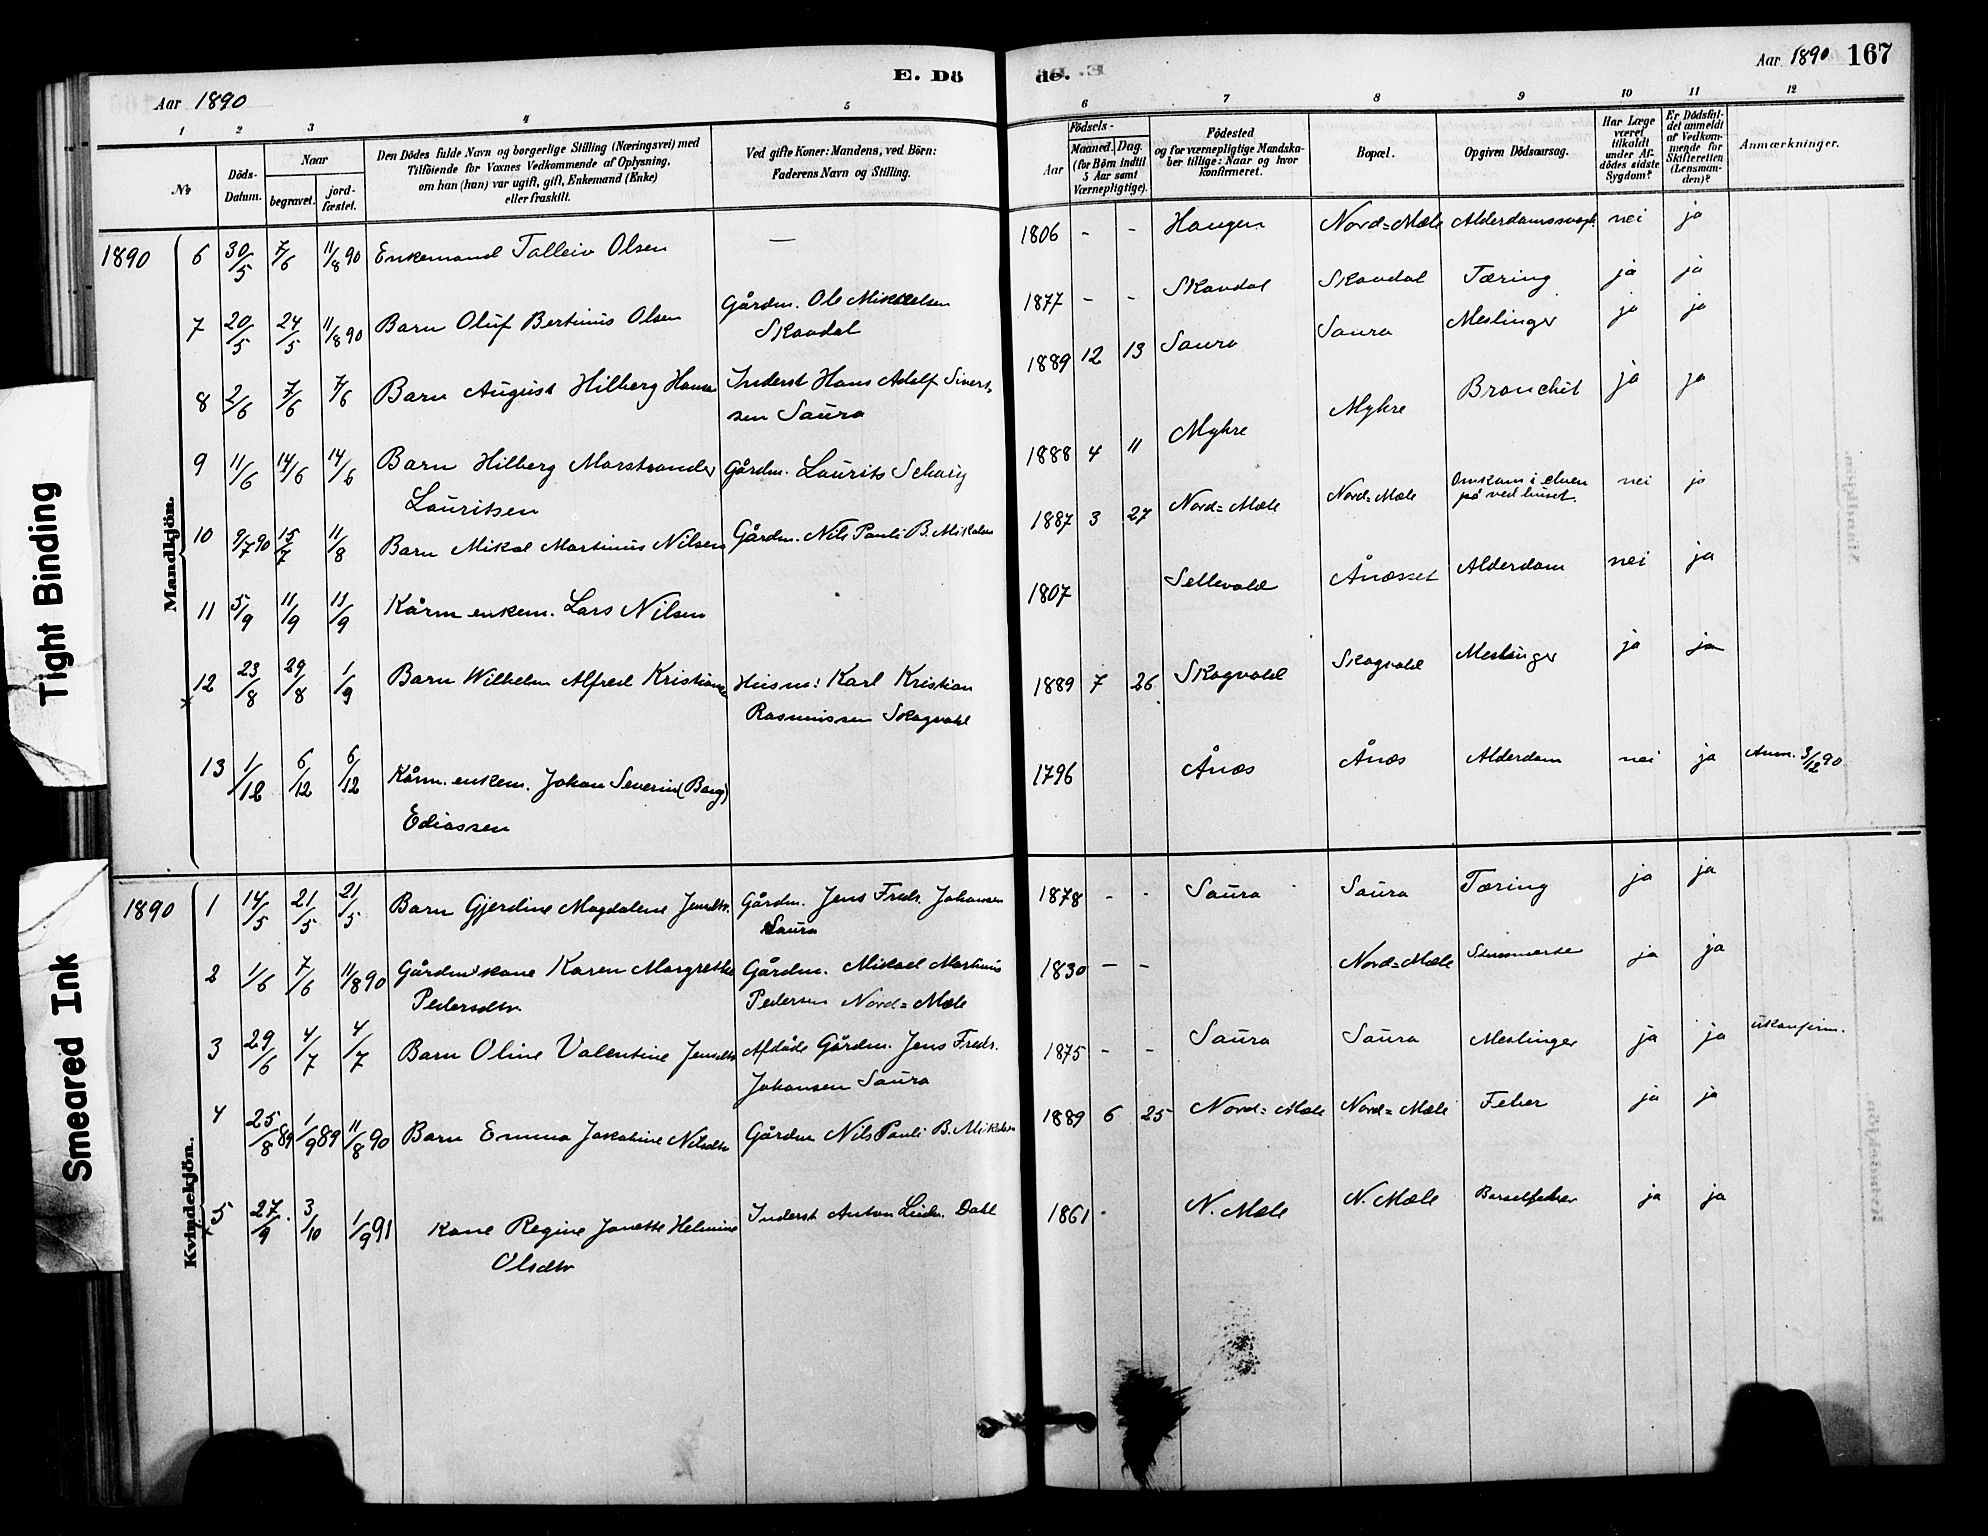 Tight Binding
Smeared Ink
E. Dö
Aar 1890
1 2 3 4 5
No
Döds-Datum.
Naar
begravet.
jord-fæstet.
Den Dödes fulde Navn og borgerlige Stilling (Næringsvei) med
Tilföiende for Voxnes Vedkommende af Oplysning,
om han (hun) var ugift, gift, Enkemand (Enke)
eller fraskilt.
Ved gifte Koner: Mandens, ved Börn:
Faderens Navn og Stilling.
Mandkjön.
1890 6 30/5 7/6 11/8 90 Enkemand Tolleiv Olsen —
7 20/5 24/5 11/8 90 Barn Oluf Bertinus Olsen Gårdm. Ole Mikkelsen
Skavdal
8 2/6 7/6 7/6 Barn August Hilberg Hansen Inderst Hans Adolf Sivert-
sen Saura
9 11/6 14/6 14/6 Barn Hilberg Marstrander Gårdm. Laurits Schariz
Lauritsen
10 9/7 90 15/7 11/8 Barn Mikal Martinus Nilsen Gårdm. Nils Pauli B. Mikalsen
11 5/9 11/9 11/9 Kårm. enkem. Lars Nilsen
12 23/8 29/8 1/9 Barn Wilhelm Alfred Kristiansen Husm: Karl Kristian
Rasmussen Skogvold
13 1/12 6/12 6/12 Kårm. enkem. Johan Severin (Bang)
Ediassen
Kvindekjön.
1890 1 14/5 21/5 21/5 Barn Gjerdine Magdalene Jensdtr. Gårdm. Jens Fredr. Johansen
Saura
2 1/6 7/6 11/8 90 Gårdm's kone Karen Margrethe Gårdm. Mikael Martinus
Pedersdtr Pedersen Nord=Mæle
3 29/6 4/7 4/7 Barn Oline Valentine Jensdtr Afdöde Gårdm. Jens Fredr.
Johansen Saura
4 25/8 89 1/9 89 11/8 90 Barn Emma Jakobine Nilsdtr Gårdm Nils Pauli B. Mikalsen
5 27/9 3/10 1/9 91 Kone Regine Janette Helmine Inderst Anton Ludv. Dahl
Olsdtr
de.
Aar 1890 167
6 7 8 9 10 11 12
Aar
Födsels-
Maaned. Dag.
(for Börn indtil
5 Aar samt
Værnepligtige).
Födested
og for værnepligtige Mandska-
ber tillige: Naar og hvor
konfirmeret.
Bopæl.
Opgiven Dödsaarsag.
Har Læge
været
tilkaldt
under Af-
dödes sidste
Sygdom?
Er Dödsfal-
det anmeldt
af Vedkom-
mende for
Skifteretten
(Lensman-
den)?
Anmærkninger.
1806 - - Haugen Nord=Mæle Alderdomssvagh. nei ja
1877 - - Skavdal Skavdal Tæring ja ja
1889 12 13 Saura Saura Meslinger ja ja
1888 4 11 Myhre Myhre Bronchit ja ja
1887 3 27 Nord=Mæle Nord=Mæle Omkom i elven
på ved huset. nei ja
1807 Sellevold Ånæsset Alderdom nei ja
1889 7 26 Skogvold Skogvold Meslinger ja ja
1796 Ånæs Ånæs Alderdom nei ja Anm. 3/12 90
1878 - - Saura Saura Tæring ja ja
1830 - - Nord=Mæle ja ja
1875 - - Saura Saura Meslinger ja ja ukonfirm.
1889 6 25 Nord=Mæle Nord=Mæle Feber ja ja
1861 - N. Mæle N. Mæle Barselfeber ja ja